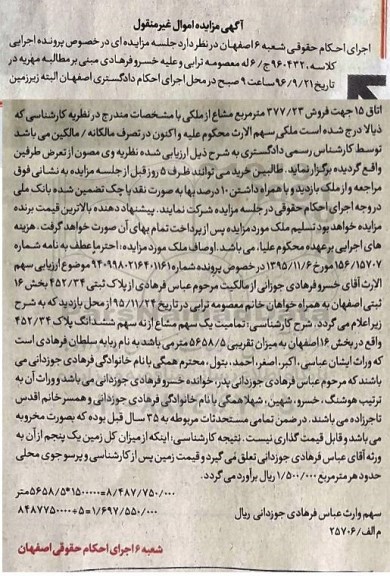 آگهی مزایده اموال غیرمنقول
اجرای احکام حقوقی شعبه ۶ اصفهان در نظر دارد جلسه مزایده ای در خصوص پرونده اجرایی
کلاسه ۹۶۰۴۳۲ ج/۶ له معصومه ترابی و علیه خسرو فرهادی مبنی بر مطالبه مهریه در
تاریخ ۹۶/۹/۲۱ ساعت ۹ صبح در محل اجرای احکام دادگستری اصفهان البته زیرزمین
اتاق ۱۵ جهت فروش ۳۷۷/۲۳ مترمربع مشاع از ملکی با مشخصات مندرج در نظریه کارشناسی که
ذیلا درج شده است ملکی سهم الارث محکوم علیه و اکنون در تصرف مالکانه / مالکین می باشد
توسط کارشناس رسمی دادگستری به شرح ذیل ارزیابی شده نظریه وی مصون از تعرض طرفین
واقع گردیده برگزار نماید. طالبین خرید می توانند ظرف ۵ روز قبل از جلسه مزایده به نشانی فوق
مراجعه و از ملک بازدید و با همراه داشتن ۱۰ درصد بها به صورت نقد یا چک تضمین شده بانک ملی
در وجه اجرای احکام حقوقی در جلسه مزایده شرکت نمایند. پیشنهاد دهنده بالاترین قیمت برنده
مزایده خواهد بود تسلیم ملک مورد مزایده پس از پرداخت تمام بهای آن صورت خواهد گرفت. هزینه
های اجرایی برعهده محکوم علیه، می باشد. اوصاف ملک مورد مزایده: احترما عطف به نامه شماره
۱۵۶/۱۵۷۰۷ مورخ ۱۳۹۵/۱۱/۶ در خصوص پرونده شماره ۹۴۰۹۹۸۰۲۱۶۴۰۱۱۶۱ موضوع ارزیابی سهم
الارث آقای خسرو فرهادی جوزانی از مالکیت مرحوم عباس فرهادی از پلاک ثبتی ۴۵۲/۳۴ بخش ۱۶
ثبتی اصفهان به همراه خواهان خانم معصومه ترابی در تاریخ ۹۵/۱۱/۲۴ از محل بازدید که به شرح
زیر اعلام می گردد. شرح کارشناسی: تمامیت یک سهم مشاع از نه سهم ششدانگ پلاک ۴۵۲/۳۴
واقع در بخش ۱۶ اصفهان به میزان تقریبی ۵۶۵۸/۵ مترمی باشد به نام ربابه سلطان فرهادی است
که وراث ایشان عباسی، اکبر، اصغر، احمد، بتول، محترم همگی با نام خانوادگی فرهادی جوزدانی می
باشند که مرحوم عباس فرهادی جوزدانی پدر، خوانده خسرو فرهادی جوزدانی می باشد و وراث آن به
ترتیب هوشنگ، خسرو، شهین، شهلا همگی با نام خانوادگی فرهادی جوزدانی و همسر خانم اقدس
تاجرزاده می باشند. در ضمن تمامی مستحدثات مربوطه به ۳۵ سال قبل بوده که بصورت مخروبه
می باشد و قابل قیمت گذاری نیست. نتیجه کارشناسی: اینکه از میزان کل زمین یک پنجم از آن به
ورثه آقای عباس فرهادی جوزدانی تعلق می گیرد و قیمت زمین پس از کارشناسی و پرسوجوی محلی
حدود هر مترمربع ۱/۵۰۰/۰۰۰ ریال برآورد می گردد.
۵۶۵۸/۵*۱۵۰۰۰۰۰=۸/۴۸۷/۷۵۰/۰۰۰متر
سهم وارث عباس فرهادی جوزدانی ریال ۸۴۸۷۷۵۰۰۰۰÷۵=۱/۶۹۷/۵۵۰/۰۰۰
م الف/۲۵۷۰۶
شعبه ۶ اجرای احکام حقوقی اصفهان